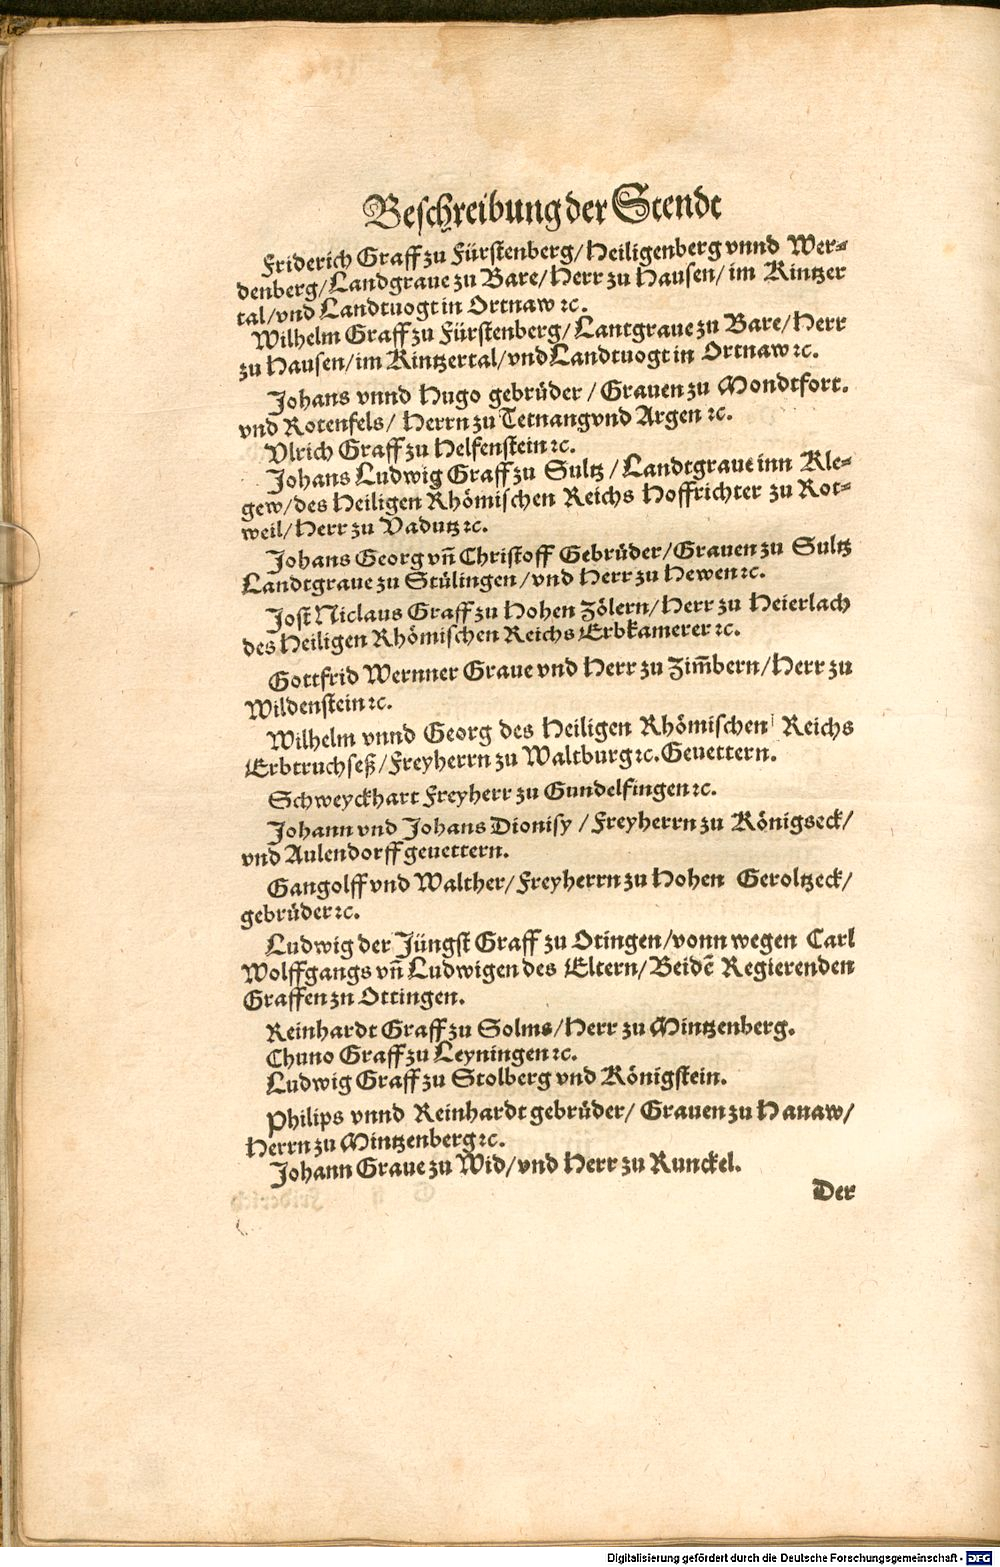 Beschreibung der Stendt
Friderich Graff zu Fürstenberg/Heiligenberg vnnd Wer=
denberg/Landgraue zu Bare/Herr zu Hausen/im Kintzer
tal/vnd Landtuogt in Ortnaw ꝛc.
Wilhelm Graff zu Fürstenberg/Lantgraue zu Bare/Herr
zu Hausen/im Kintzertal/vnd Landtuogt in Ortnaw ꝛc.
Johans vnnd Hugo gebrüder/Grauen zu Mondtfort.
vnd Rotenfels/Herrn zu Tetnang vnd Argen ꝛc.
Vlrich Graff zu Helfenstein ꝛc.
Johans Ludwig Graff zu Sultz/Landtgraue inn Kle=
gew/des Heiligen Rhömischen Reichs Hoffrichter zu Rot=
weil/Herr zu Vadutz ꝛc.
Johans Georg vñ Christoff Gebrüder/Grauen zu Sultz
Landtgraue zu Stülingen/vnd Herr zu Hewen ꝛc.
Jost Niclaus Graff zu Hohen Zölern/Herr zu Heierlach
des Heiligen Rhömischen Reichs Erbkamerer ꝛc.
Gottfrid Wernner Graue vnd Herr zu Zim̃bern/Herr zu
Wildenstein ꝛc.
Wilhelm vnnd Georg des Heiligen Rhömischen Reichs
Erbtruchseß/Freyherrn zu Waltburg ꝛc. Geuettern.
Schweyckhart Freyherr zu Gundelfingen ꝛc.
Johann vnd Johans Dionisy/Freyherrn zu Königseck/
vnd Aulendorff geuettern.
Gangolff vnd Walther/Freyherrn zu Hohen Geroltzeck/
gebrüder ꝛc.
Ludwig der Jüngst Graff zu Otingen/vonn wegen Carl
Wolffgangs vñ Ludwigen des Eltern/Beidẽ Regierenden
Graffen zn Ottingen.
Reinhardt Graff zu Solms/Herr zu Mintzenberg.
Chuno Graff zu Leyningen ꝛc.
Ludwig Graff zu Stolberg vnd Königstein.
Philips vnnd Reinhardt gebrüder/Grauen zu Hanaw/
Herrn zu Mintzenberg ꝛc.
Johann Graue zu Wid/vnd Herr zu Runckel.
Der
Digitalisierung gefördert durch die Deutsche Forschungsgemeinschaft - DFG